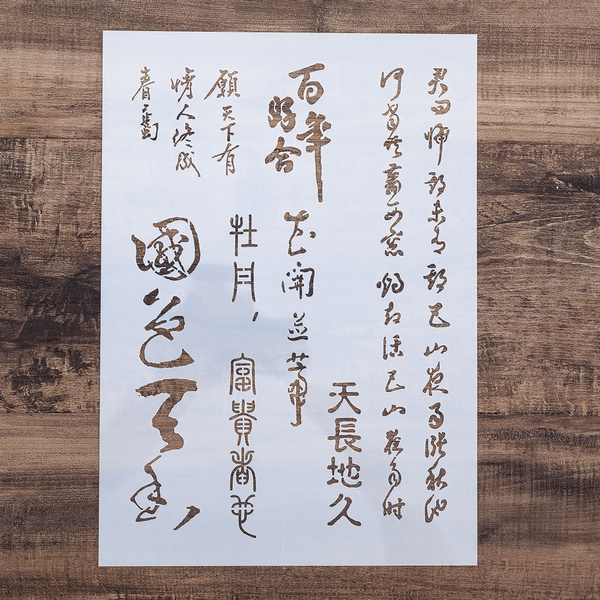 君問歸期未有期巴山夜雨漲秋池
何當共剪西窗燭卻話巴山夜雨時
天長地久
百年好合
花開並蒂
願天下有
情人終成
眷屬
牡丹，富貴者也
國色天香